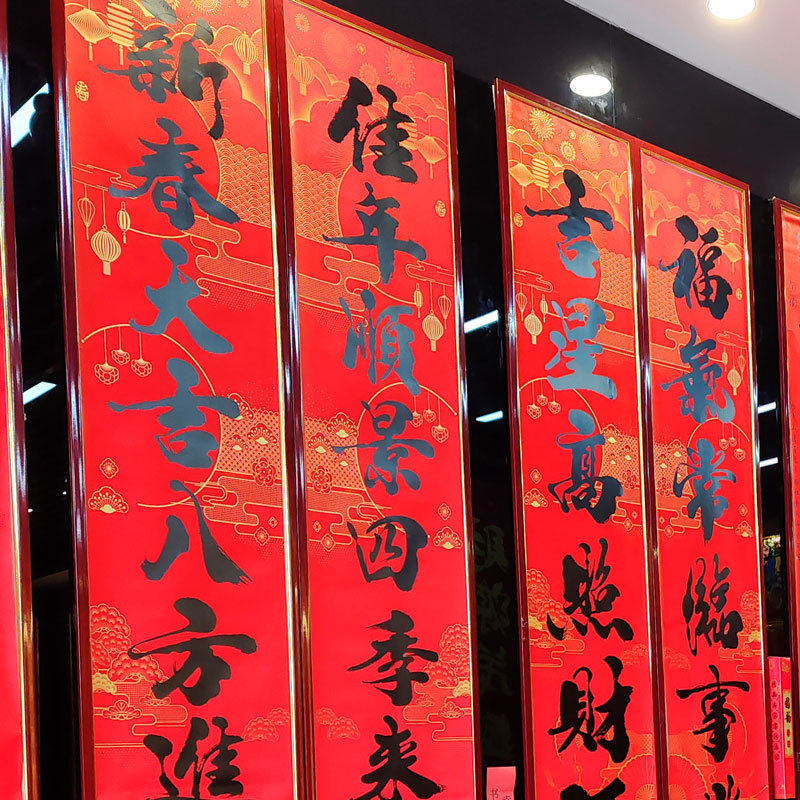 新春大吉八方進
佳年順景四季来
吉星高照財
福氣常臨事
书